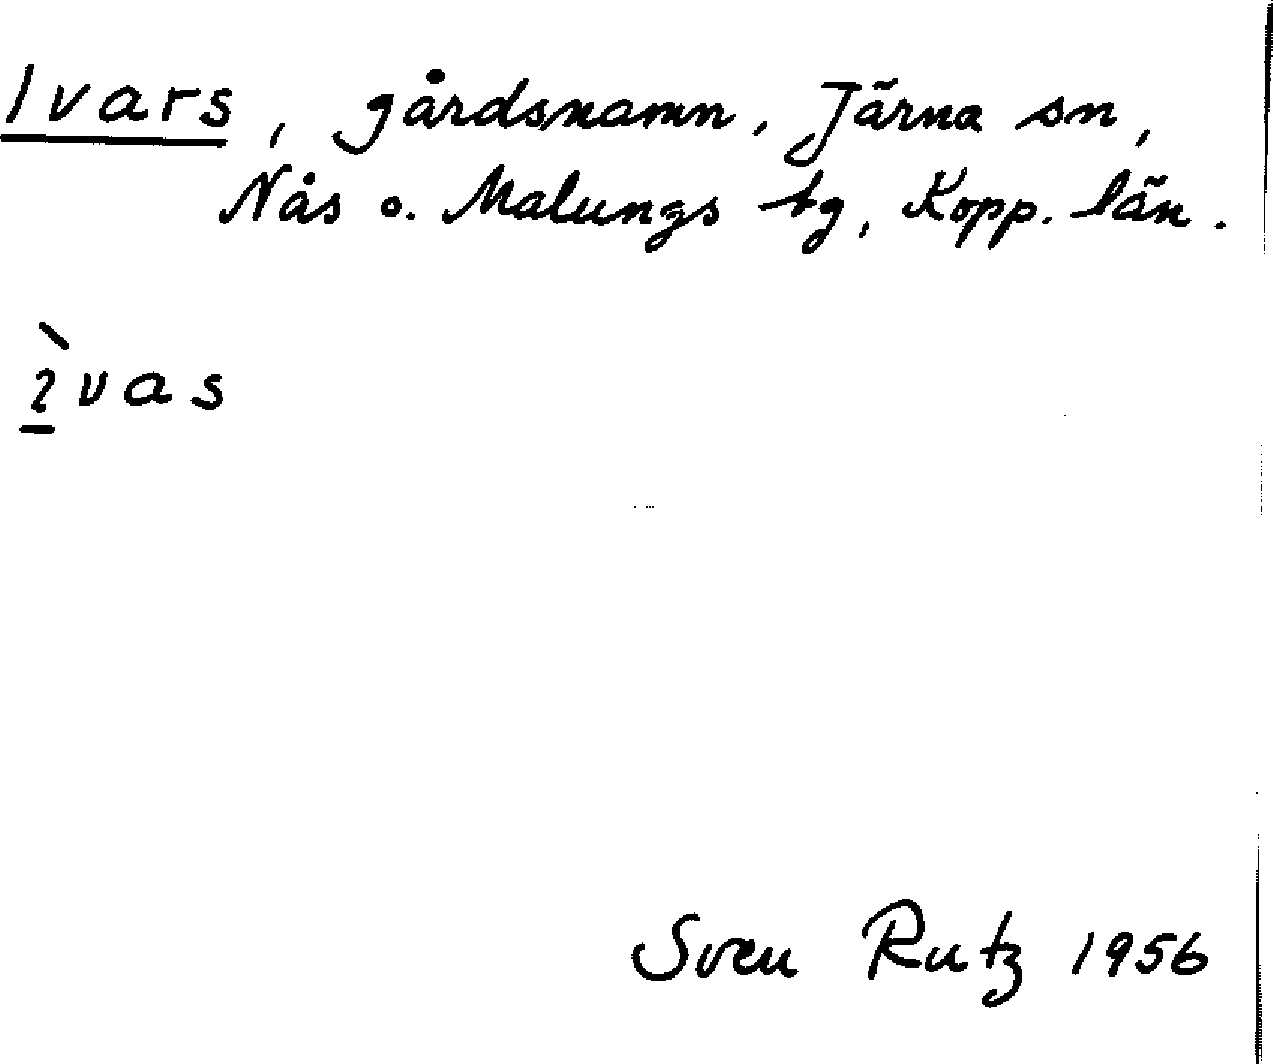 Ivars, gårdsnamn, Järna sn,
Nås o. Malungs tg, Kopp. län.
ɩ̠̀vas
Sven Rutz 1956